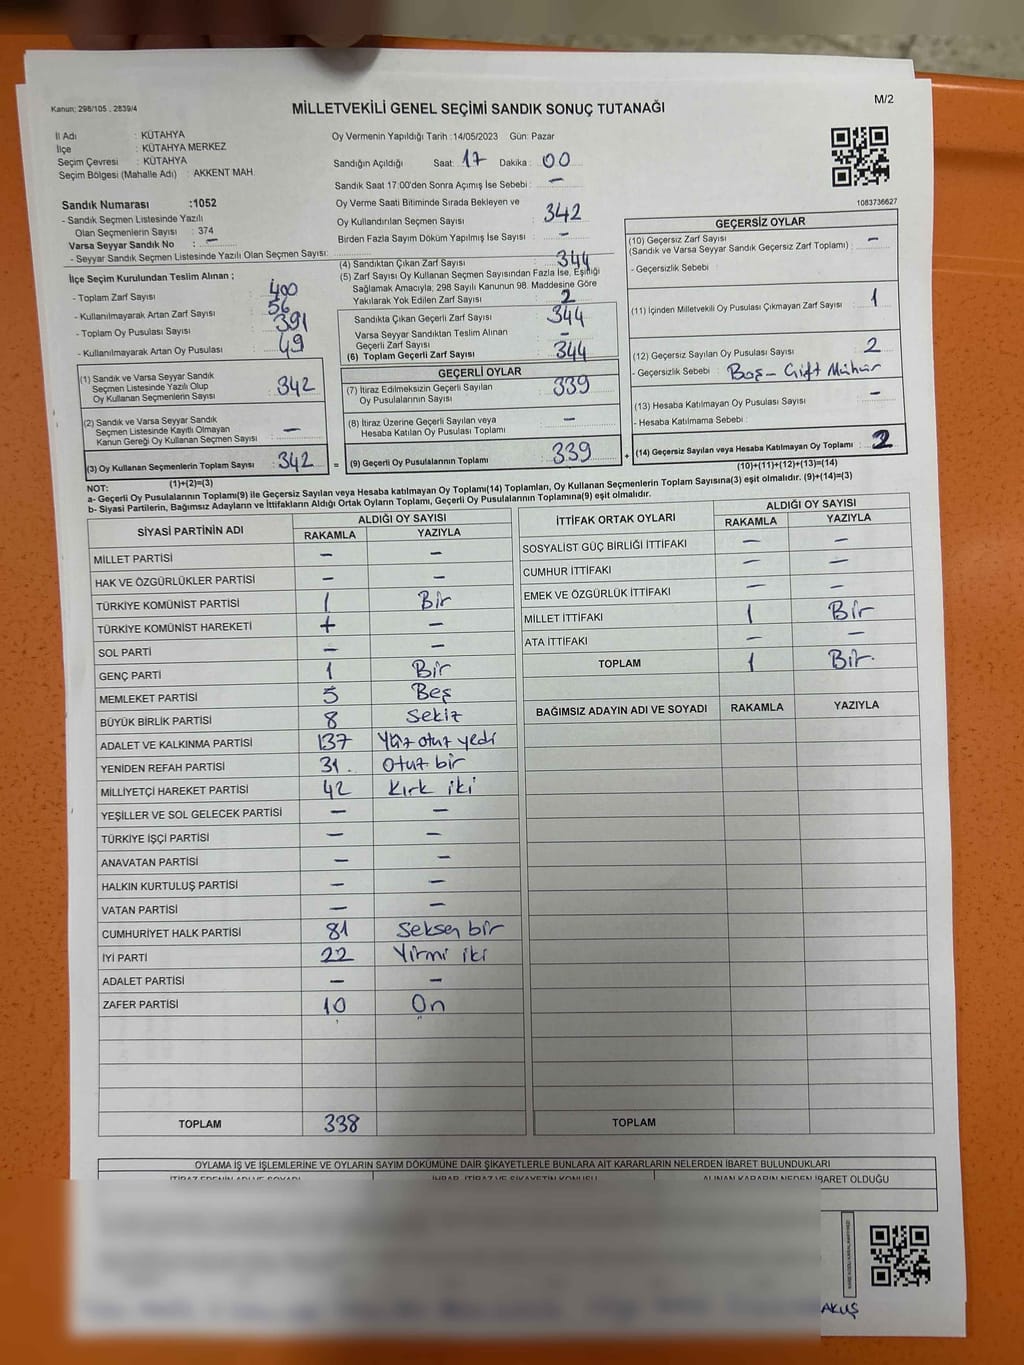 Kanun: 298/105 , 2839/4
MİLLETVEKİLİ GENEL SEÇİMİ SANDIK SONUÇ TUTANAĞI
M/2
İl Adı : KÜTAHYA
İlçe : KÜTAHYA MERKEZ
Seçim Çevresi : KÜTAHYA
Seçim Bölgesi (Mahalle Adı) : AKKENT MAH.
Sandık Numarası :1052
- Sandık Seçmen Listesinde Yazılı
Olan Seçmenlerin Sayısı : 374
Varsa Seyyar Sandık No : –
- Seyyar Sandık Seçmen Listesinde Yazılı Olan Seçmen Sayısı:
İlçe Seçim Kurulundan Teslim Alınan ;
- Toplam Zarf Sayısı : 400
- Kullanılmayarak Artan Zarf Sayısı : 56
- Toplam Oy Pusulası Sayısı : 391
- Kullanılmayarak Artan Oy Pusulası : 49
(1) Sandık ve Varsa Seyyar Sandık
Seçmen Listesinde Yazılı Olup
Oy Kullanan Seçmenlerin Sayısı : 342
(2) Sandık ve Varsa Seyyar Sandık
Seçmen Listesinde Kayıtlı Olmayan
Kanun Gereği Oy Kullanan Seçmen Sayısı : –
(3) Oy Kullanan Seçmenlerin Toplam Sayısı : 342 =
(1)+(2)=(3)
Oy Vermenin Yapıldığı Tarih :14/05/2023 Gün: Pazar
Sandığın Açıldığı Saat: 17 Dakika : 00
Sandık Saat 17:00'den Sonra Açımış İse Sebebi : –
Oy Verme Saati Bitiminde Sırada Bekleyen ve
Oy Kullandırılan Seçmen Sayısı : 342
Birden Fazla Sayım Döküm Yapılmış İse Sayısı : –
(4) Sandıktan Çıkan Zarf Sayısı : 344
(5) Zarf Sayısı Oy Kullanan Seçmen Sayısından Fazla İse, Eşitliği
Sağlamak Amacıyla, 298 Sayılı Kanunun 98. Maddesine Göre
Yakılarak Yok Edilen Zarf Sayısı : 2
Sandıkta Çıkan Geçerli Zarf Sayısı : 344
Varsa Seyyar Sandıktan Teslim Alınan
Geçerli Zarf Sayısı : –
(6) Toplam Geçerli Zarf Sayısı : 344
GEÇERLİ OYLAR
(7) İtiraz Edilmeksizin Geçerli Sayılan
Oy Pusulalarının Sayısı : 339
(8) İtiraz Üzerine Geçerli Sayılan veya
Hesaba Katılan Oy Pusulası Toplamı : –
(9) Geçerli Oy Pusulalarının Toplamı : 339 +
1083736627
GEÇERSİZ OYLAR
(10) Geçersiz Zarf Sayısı
(Sandık ve Varsa Seyyar Sandık Geçersiz Zarf Toplamı) : –
- Geçersizlik Sebebi :
(11) İçinden Milletvekili Oy Pusulası Çıkmayan Zarf Sayısı : 1
(12) Geçersiz Sayılan Oy Pusulası Sayısı : 2
- Geçersizlik Sebebi : Boş – Çift Mühür
(13) Hesaba Katılmayan Oy Pusulası Sayısı : –
- Hesaba Katılmama Sebebi :
(14) Geçersiz Sayılan veya Hesaba Katılmayan Oy Toplamı :
(10)+(11)+(12)+(13)=(14)
NOT:
a- Geçerli Oy Pusulalarının Toplamı(9) ile Geçersiz Sayılan veya Hesaba katılmayan Oy Toplamı(14) Toplamları, Oy Kullanan Seçmenlerin Toplam Sayısına(3) eşit olmalıdır. (9)+(14)=(3)
b- Siyasi Partilerin, Bağımsız Adayların ve İttifakların Aldığı Ortak Oyların Toplamı, Geçerli Oy Pusulalarının Toplamına(9) eşit olmalıdır.
SİYASİ PARTİNİN ADI ALDIĞI OY SAYISI
RAKAMLA YAZIYLA
MİLLET PARTİSİ – –
HAK VE ÖZGÜRLÜKLER PARTİSİ – –
TÜRKİYE KOMÜNİST PARTİSİ 1 Bir
TÜRKİYE KOMÜNİST HAREKETİ –
SOL PARTİ – –
GENÇ PARTİ 1 Bir
MEMLEKET PARTİSİ 5 Beş
BÜYÜK BİRLİK PARTİSİ 8 Sekiz
ADALET VE KALKINMA PARTİSİ 137 Yüz otuz yedi
YENİDEN REFAH PARTİSİ 31. Otuz bir
MİLLİYETÇİ HAREKET PARTİSİ 42 Kırk iki
YEŞİLLER VE SOL GELECEK PARTİSİ – –
TÜRKİYE İŞÇİ PARTİSİ – –
ANAVATAN PARTİSİ – –
HALKIN KURTULUŞ PARTİSİ – –
VATAN PARTİSİ – –
CUMHURİYET HALK PARTİSİ 81 Seksen bir
İYİ PARTİ 22 Yirmi iki
ADALET PARTİSİ – –
ZAFER PARTİSİ 10 On
TOPLAM 338
İTTİFAK ORTAK OYLARI ALDIĞI OY SAYISI
RAKAMLA YAZIYLA
SOSYALİST GÜÇ BİRLİĞİ İTTİFAKI – –
CUMHUR İTTİFAKI – –
EMEK VE ÖZGÜRLÜK İTTİFAKI – –
MİLLET İTTİFAKI 1 Bir
ATA İTTİFAKI – –
TOPLAM 1 Bir.
BAĞIMSIZ ADAYIN ADI VE SOYADI RAKAMLA YAZIYLA
TOPLAM
OYLAMA İŞ VE İŞLEMLERİNE VE OYLARIN SAYIM DÖKÜMÜNE DAİR ŞİKAYETLERLE BUNLARA AİT KARARLARIN NELERDEN İBARET BULUNDUKLARI
İTİRAZ EDENİN ADI VE SOYADI İHBAR, İTİRAZ VE ŞİKAYETİN KONUSU ALINAN KARARIN NEDEN İBARET OLDUĞU
AKUŞ